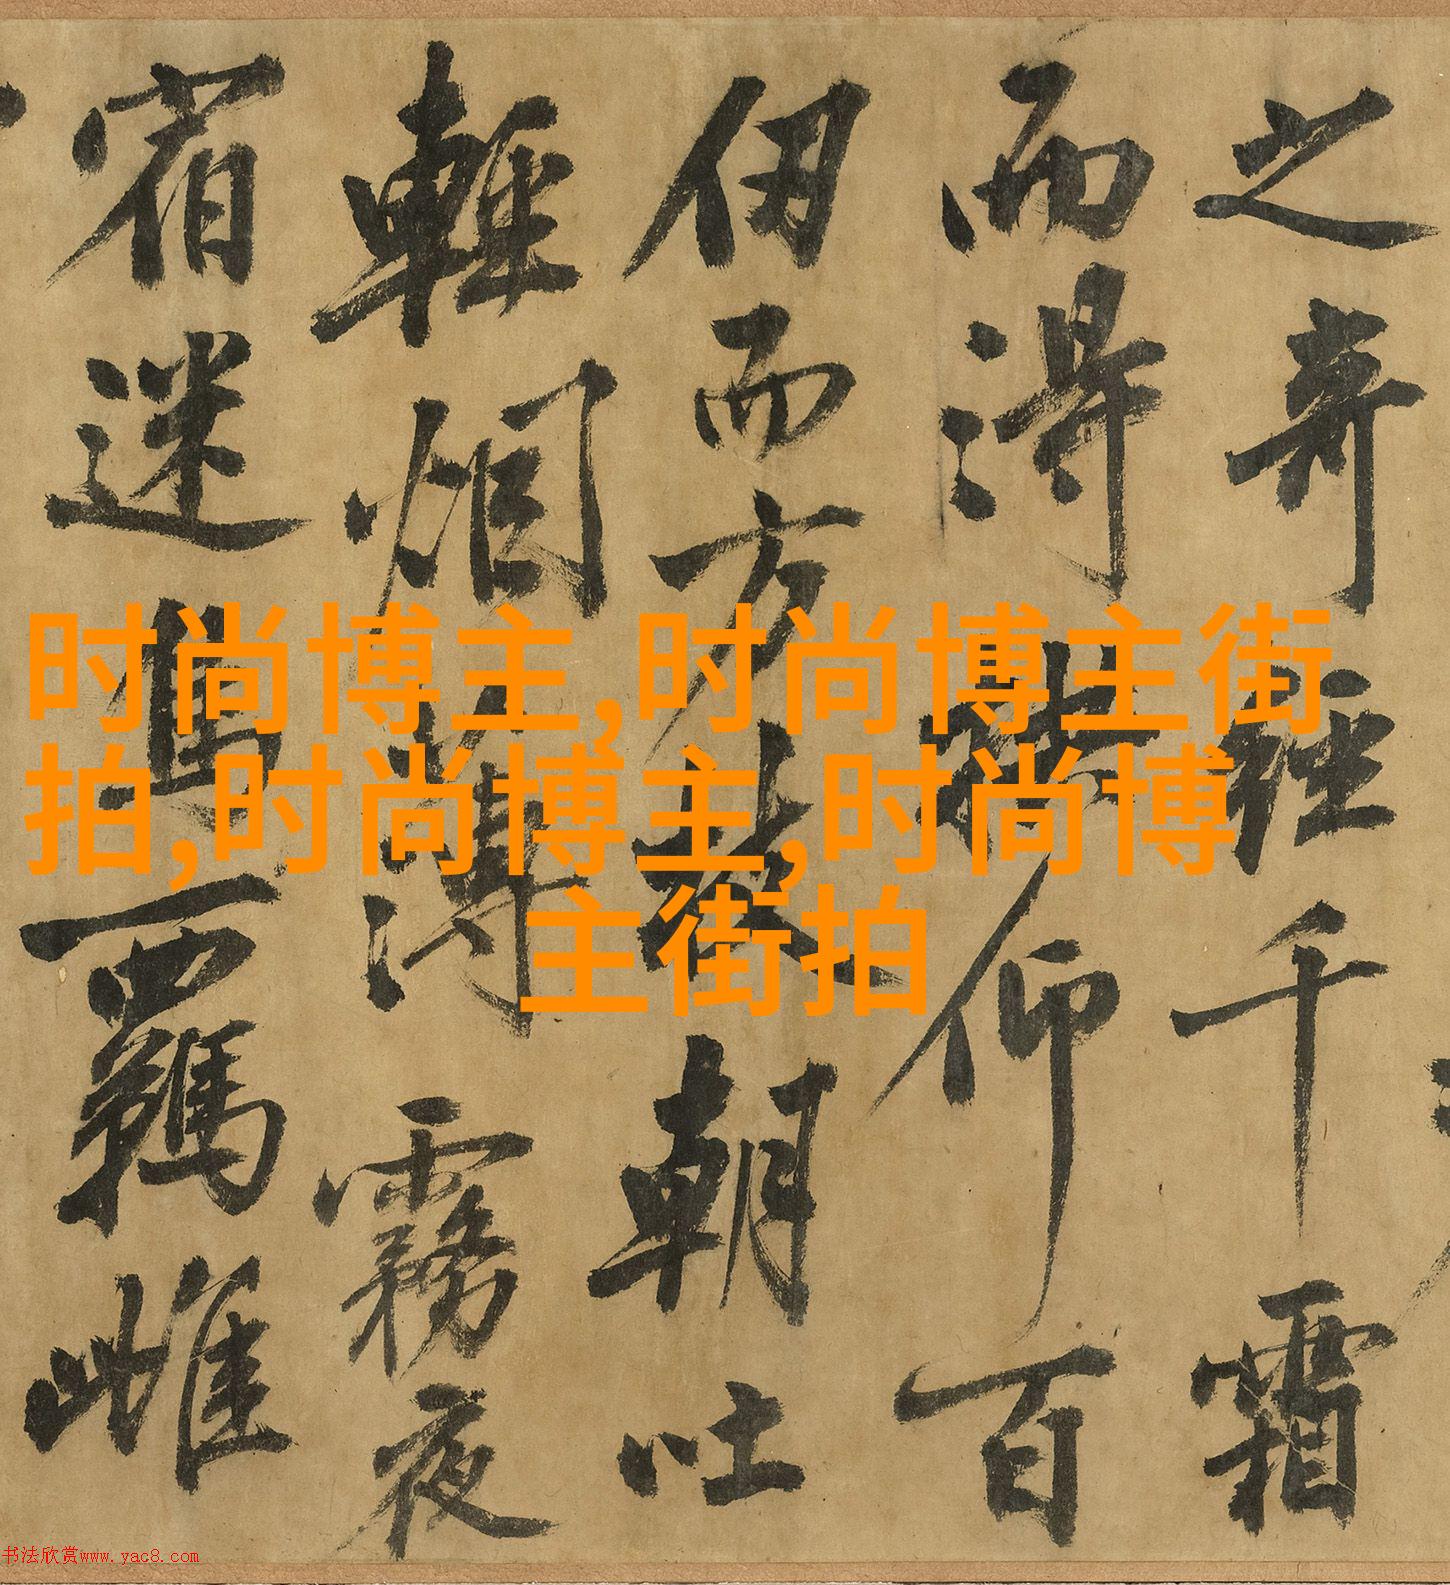 之奇經千霜
而得拱仰百
仞而方枝朝吐
輕烟薄霧夜
宿迷鳥羈雌
时尚博主,时尚博主街
拍,时尚博主,时尚博
主街拍
书法欣赏www.yac8.com